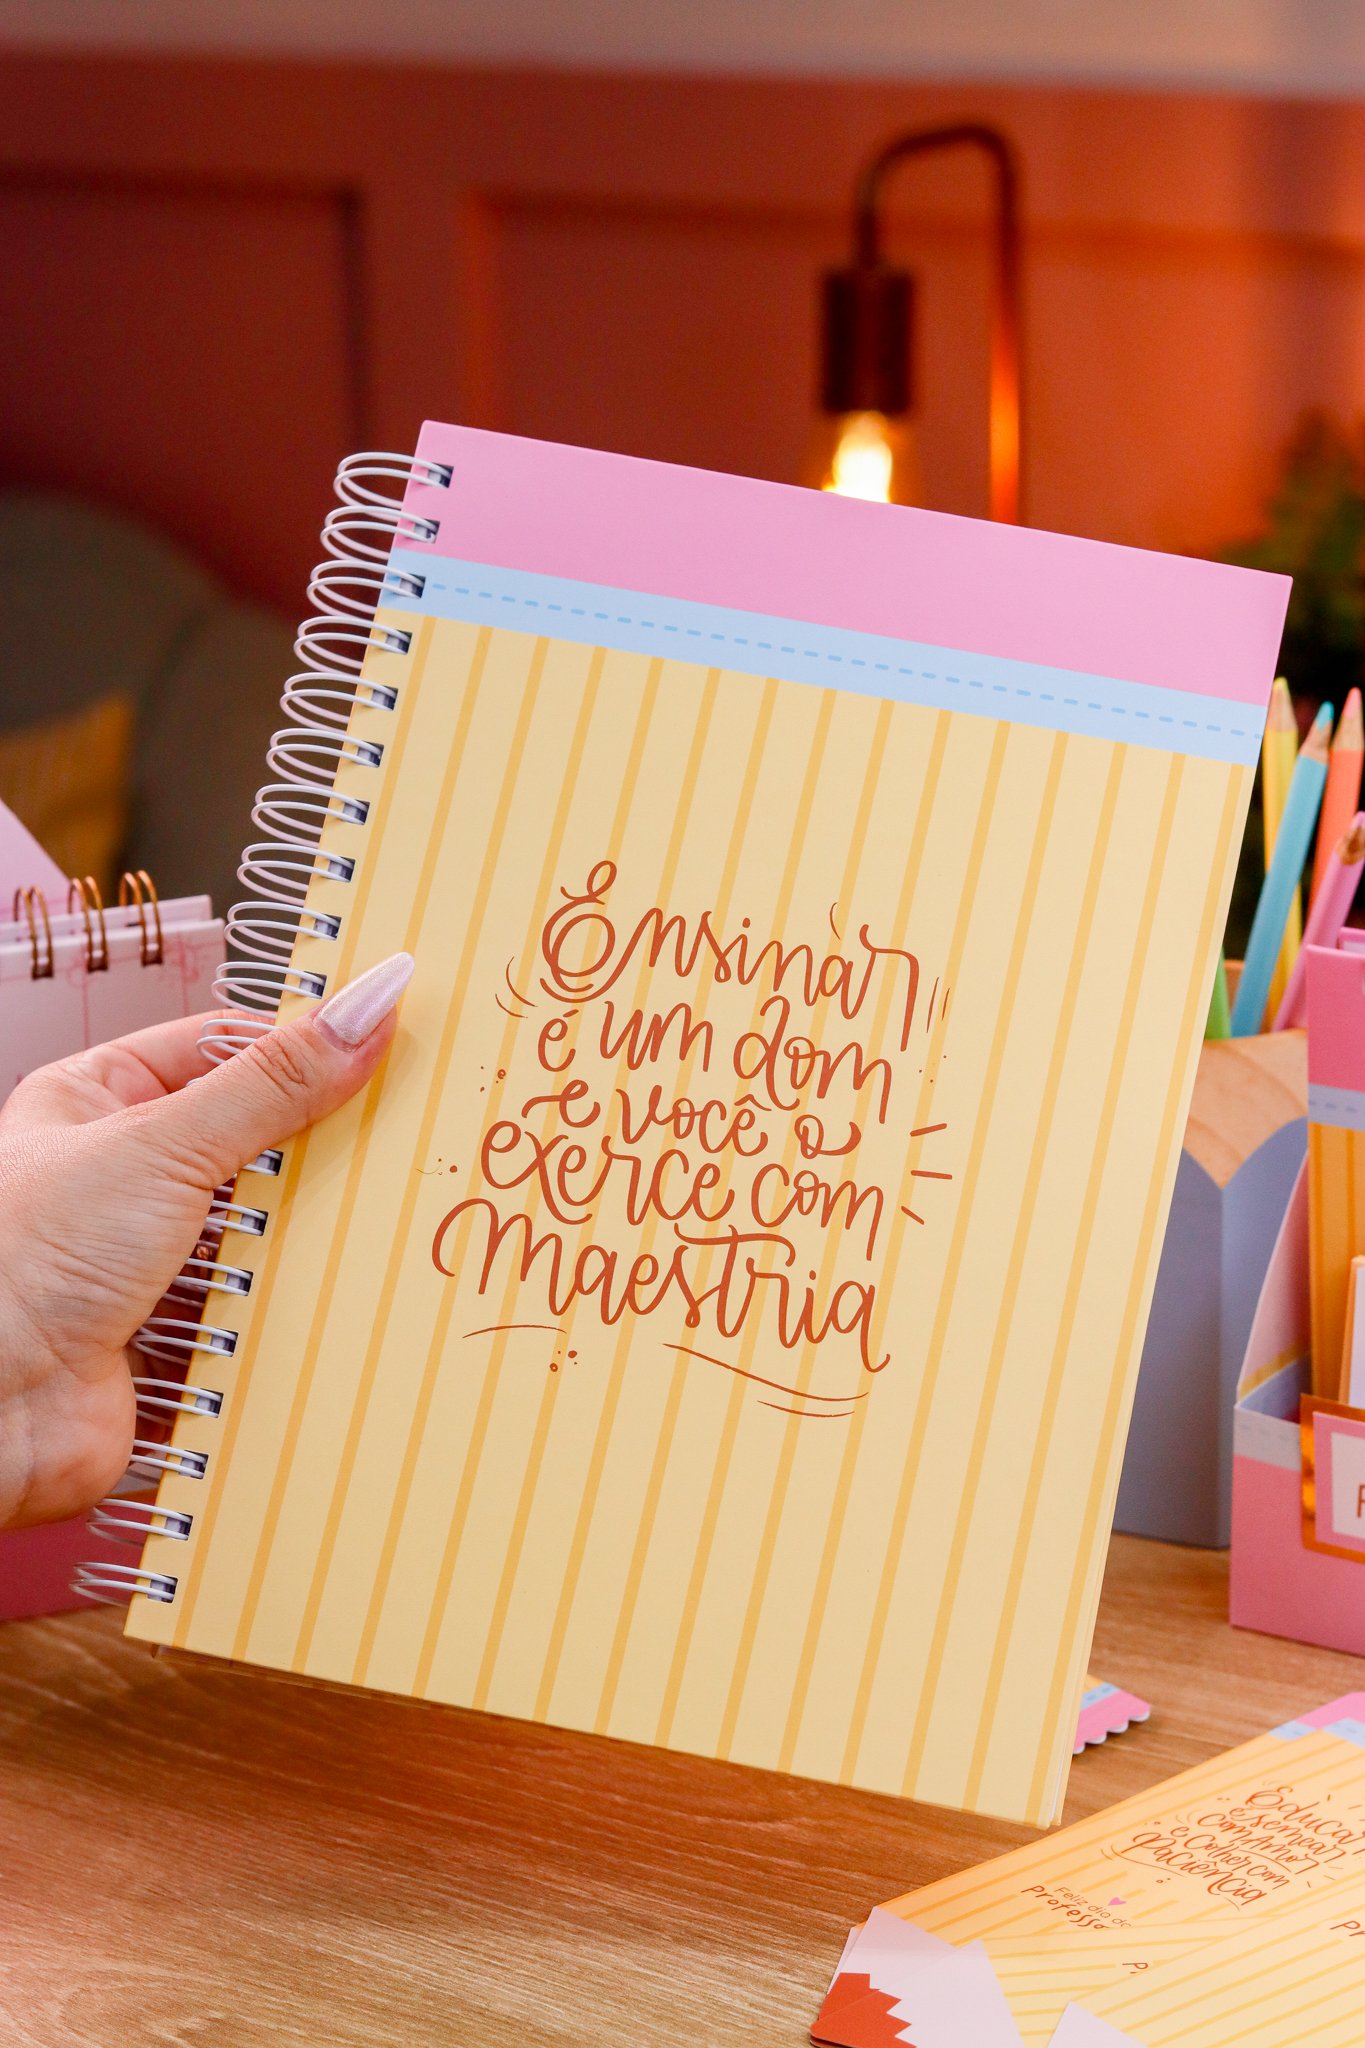 Ensinar
é um dom
e você o
exerce com
Maestria
Educar
é semear
com Amor
e Colher com
Paciência
Feliz dia do
Professo